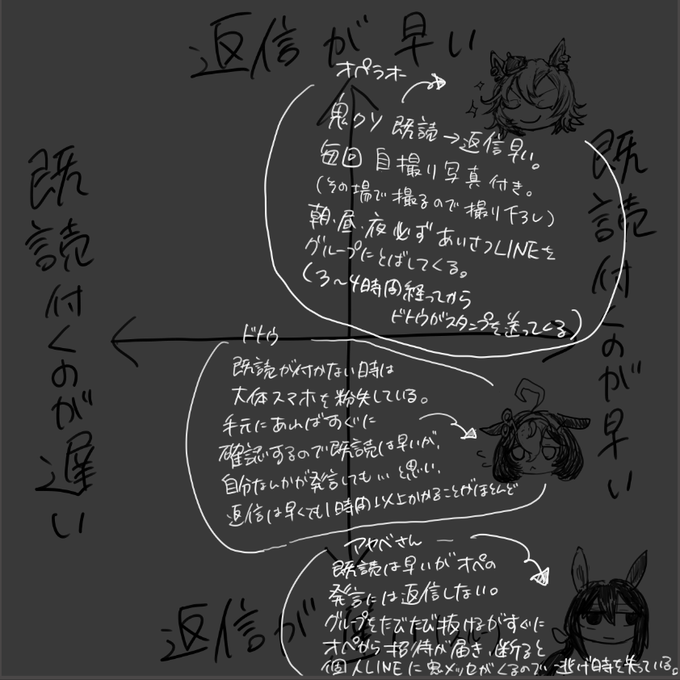 返信が早い
オペラオー
鬼クソ既読→返信早い。
毎回自撮り写真付き。
(その場で撮るので撮り下ろし)
朝、昼、夜必ずあいさつLINEを
グループにとばしてくる。
(3〜4時間経ってから
ドトウがスタンプを送ってくる)
既読付くのが遅い
既読付くのが早い
ドトウ
既読が付かない時は
大体スマホを紛失している。
手元にあればすぐに
確認するので既読は早いが、
自分なんかが発言しても…と思い、
返信は早くても1時間以上かかることがほとんど
アヤベさん
既読は早いがオペの
発言には返信しない。
グループをたびたび抜けるがすぐに
オペから招待が届き、断ると
個人LINEに鬼メッセがくるので逃げ時を失っている。
返信が遅い